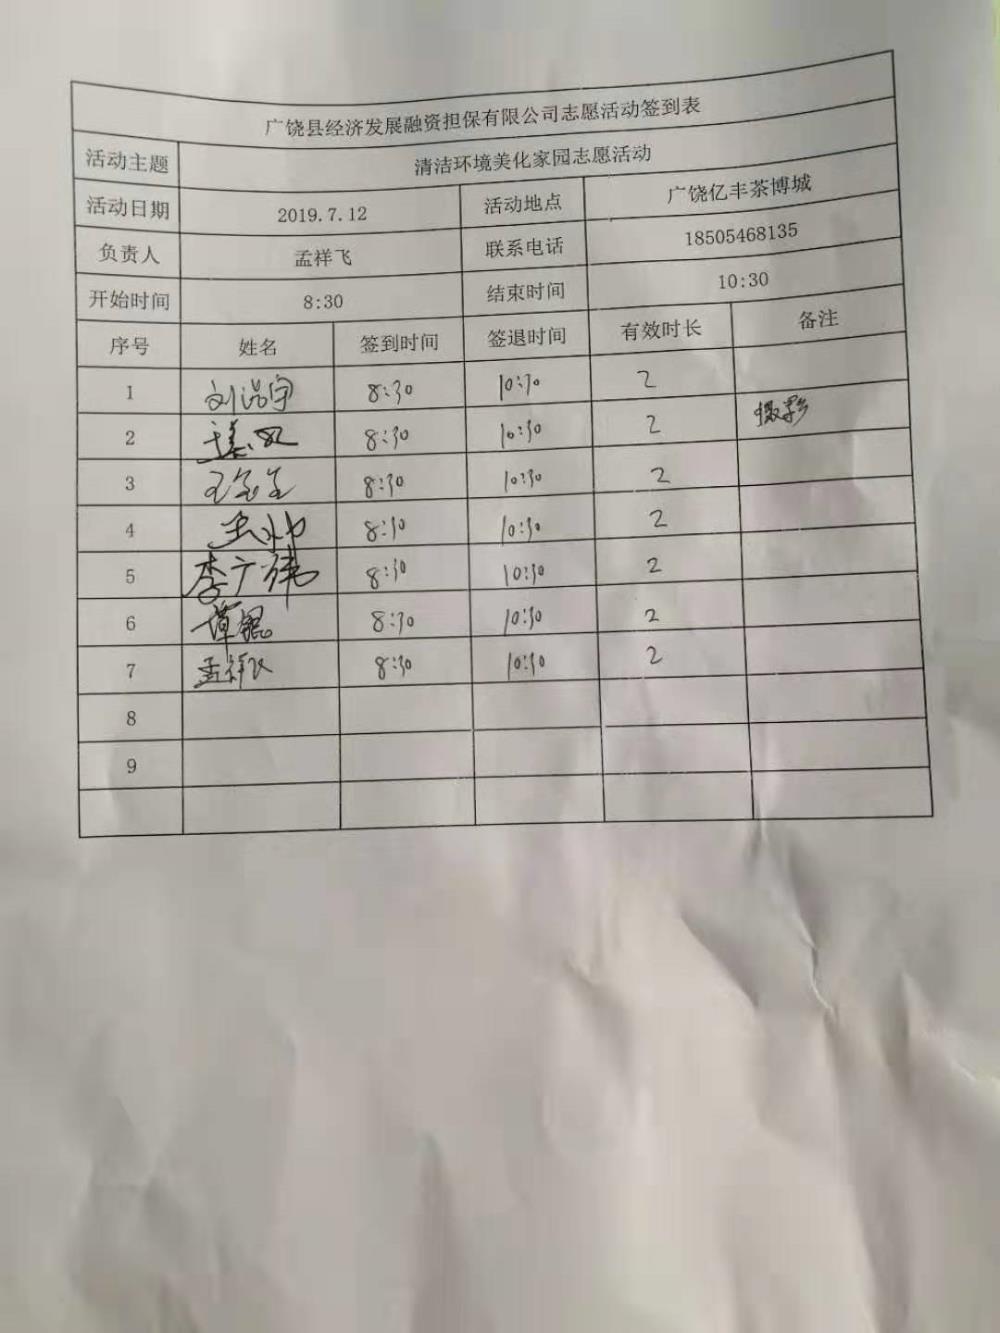 广饶县经济发展融资担保有限公司志愿活动签到表
活动主题 清洁环境美化家园志愿活动
活动日期 2019.7.12 活动地点 广饶亿丰茶博城
负责人 孟祥飞 联系电话 18505468135
开始时间 8:30 结束时间 10:30
序号 姓名 签到时间 签退时间 有效时长 备注
1 8:30 10:30 2
2 8:30 10:30 2 摄影
3 8:30 10:30 2
4 8:30 10:30 2
5 李广伟 8:30 10:30 2
6 谭锟 8:30 10:30 2
7 孟祥飞 8:30 10:30 2
8
9